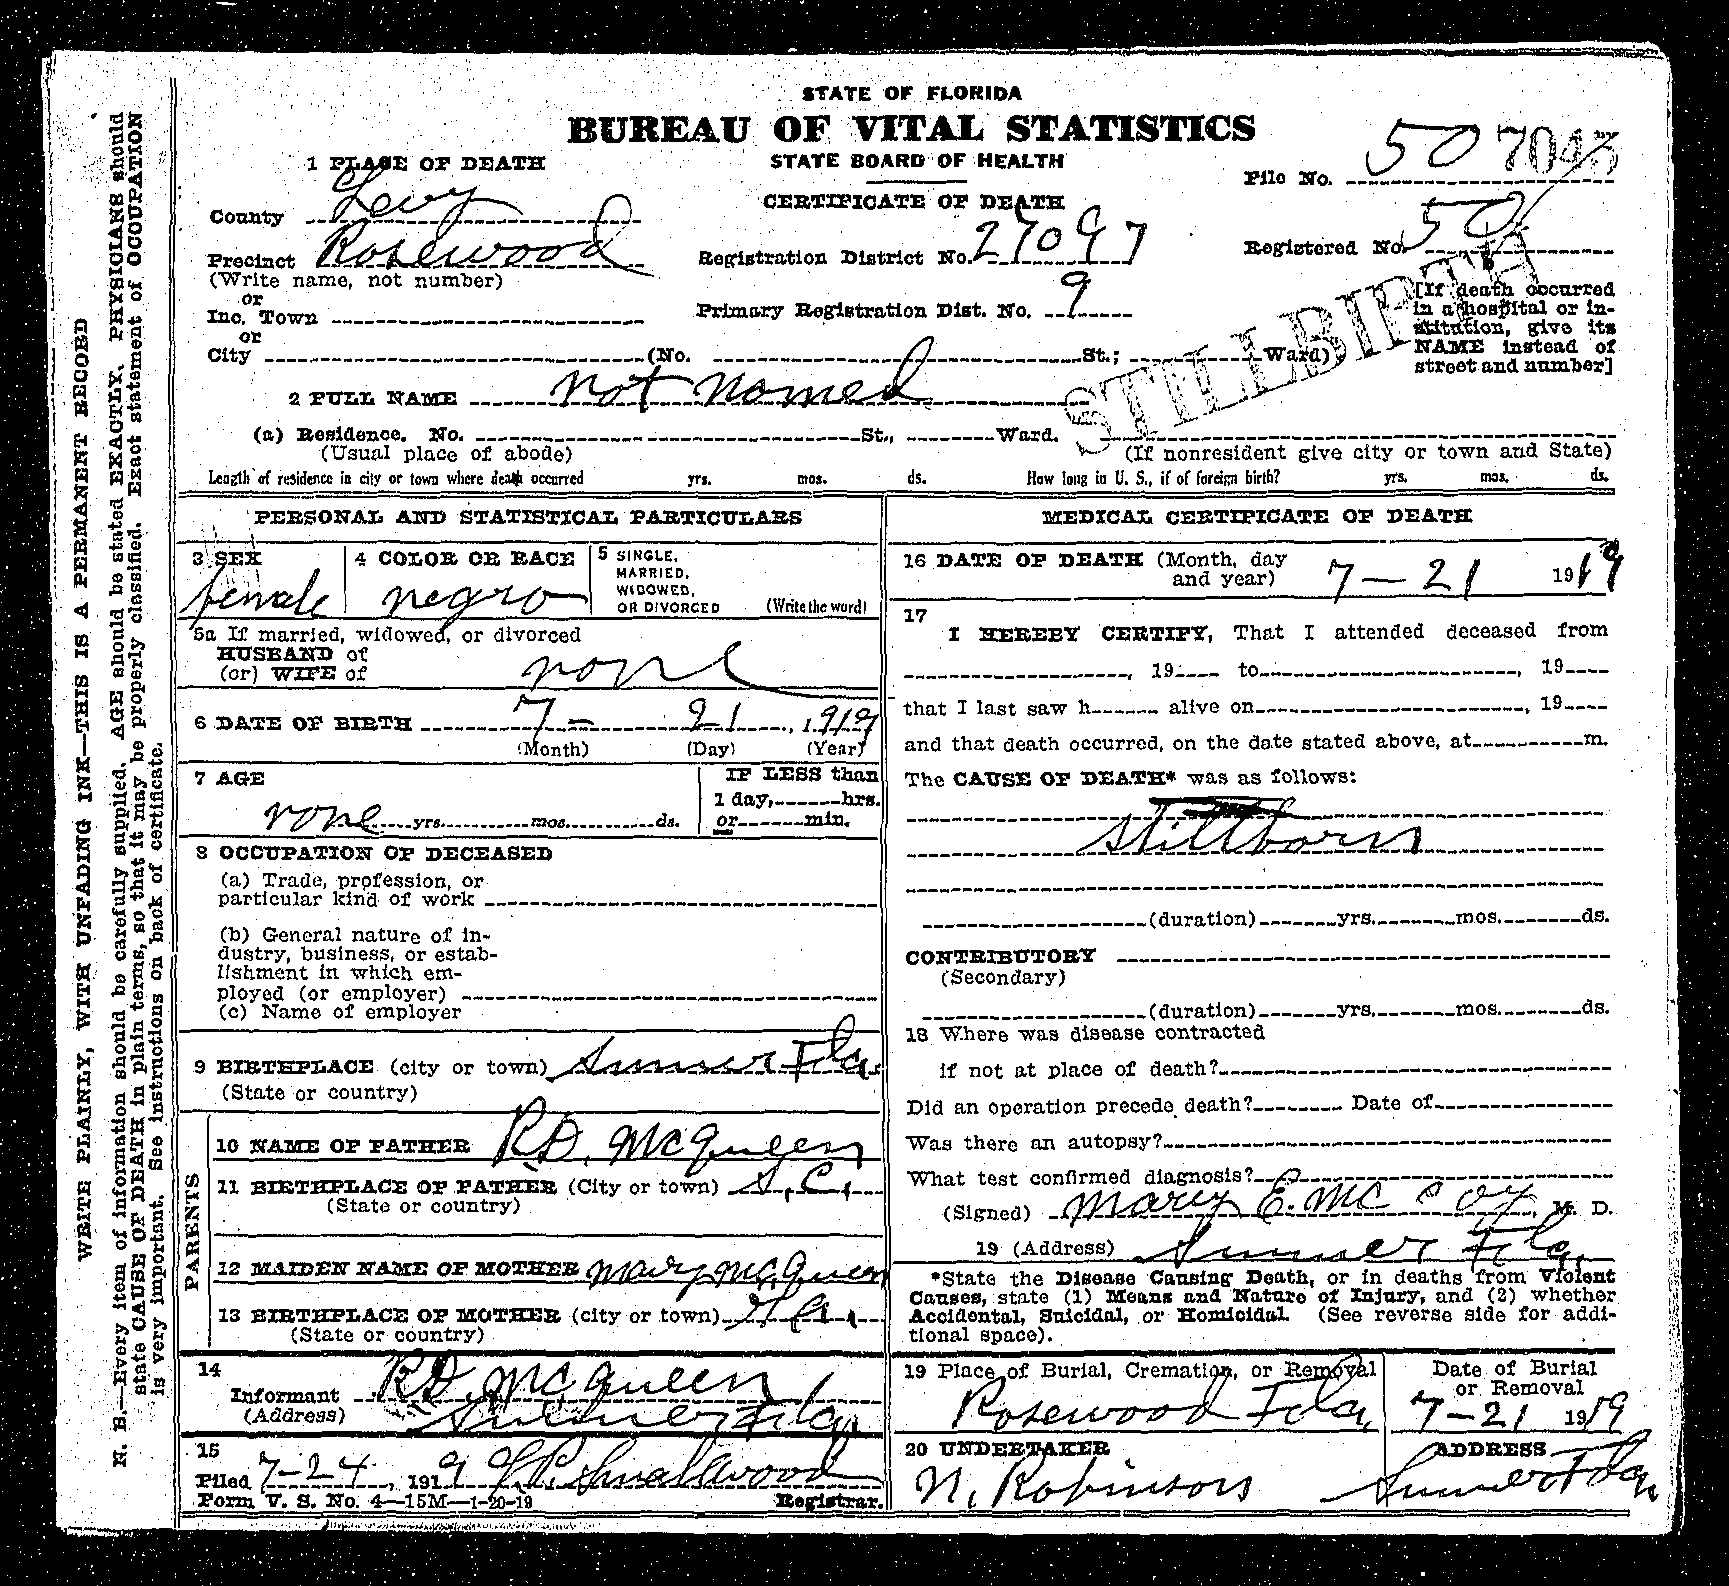 STATE OF FLORIDA
BUREAU OF VITAL STATISTICS
STATE BOARD OF HEALTH
CERTIFICATE OF DEATH
1 PLACE OF DEATH
County Levy
Precinct Rosewood
(Write name, not number)
or
Inc. Town
or
City (No. St.; Ward)
File No. 50 7043
Registered No. 50
Registration District No. 27097
Primary Registration Dist. No. 9
[If death occurred
in a hospital or in-
stitution, give its
NAME instead of
street and number]
STILLBIRTH
2 FULL NAME not named
(a) Residence. No. St., Ward.
(Usual place of abode) (If nonresident give city or town and State)
Length of residence in city or town where death occurred yrs. mos. ds. How long in U. S., if of foreign birth? yrs. mos. ds.
PERSONAL AND STATISTICAL PARTICULARS
3 SEX
female
4 COLOR OR RACE
negro
5 SINGLE,
MARRIED,
WIDOWED,
OR DIVORCED (Write the word)
5a If married, widowed, or divorced
HUSBAND of
(or) WIFE of none
6 DATE OF BIRTH 7 - 21, 1919
(Month) (Day) (Year)
7 AGE
none yrs. mos. ds.
IF LESS than
1 day, hrs.
or min.
8 OCCUPATION OF DECEASED
(a) Trade, profession, or
particular kind of work
(b) General nature of in-
dustry, business, or estab-
lishment in which em-
ployed (or employer)
(c) Name of employer
9 BIRTHPLACE (city or town) Sumner Fla.
(State or country)
PARENTS
10 NAME OF FATHER R.D. McQueen
11 BIRTHPLACE OF FATHER (City or town) S.C.
(State or country)
12 MAIDEN NAME OF MOTHER Mary McQueen
13 BIRTHPLACE OF MOTHER (city or town) Fla.
(State or country)
14
Informant R.D. McQueen
(Address) Sumner Fla.
15
Filed 7-24, 1919 Smallwood
Registrar.
Form V. S. No. 4—15M—1-20-19
MEDICAL CERTIFICATE OF DEATH
16 DATE OF DEATH (Month, day
and year) 7 - 21 1919
17
I HEREBY CERTIFY, That I attended deceased from
, 19 to , 19
that I last saw h alive on , 19
and that death occurred, on the date stated above, at m.
The CAUSE OF DEATH* was as follows:
Stillborn
(duration) yrs. mos. ds.
CONTRIBUTORY
(Secondary)
(duration) yrs. mos. ds.
18 Where was disease contracted
if not at place of death?
Did an operation precede death? Date of
Was there an autopsy?
What test confirmed diagnosis?
(Signed) Mary E. McCoy, M. D.
19 (Address) Sumner Fla.
*State the Disease Causing Death, or in deaths from Violent
Causes, state (1) Means and Nature of Injury, and (2) whether
Accidental, Suicidal, or Homicidal. (See reverse side for addi-
tional space).
19 Place of Burial, Cremation, or Removal
Rosewood Fla.
Date of Burial
or Removal
7-21 1919
20 UNDERTAKER
N. Robinson
ADDRESS
Sumner Fla.
WRITE PLAINLY, WITH UNFADING INK—THIS IS A PERMANENT RECORD
N. B.—Every item of information should be carefully supplied. AGE should be stated EXACTLY. PHYSICIANS should
state CAUSE OF DEATH in plain terms, so that it may be properly classified. Exact statement of OCCUPATION
is very important. See instructions on back of certificate.